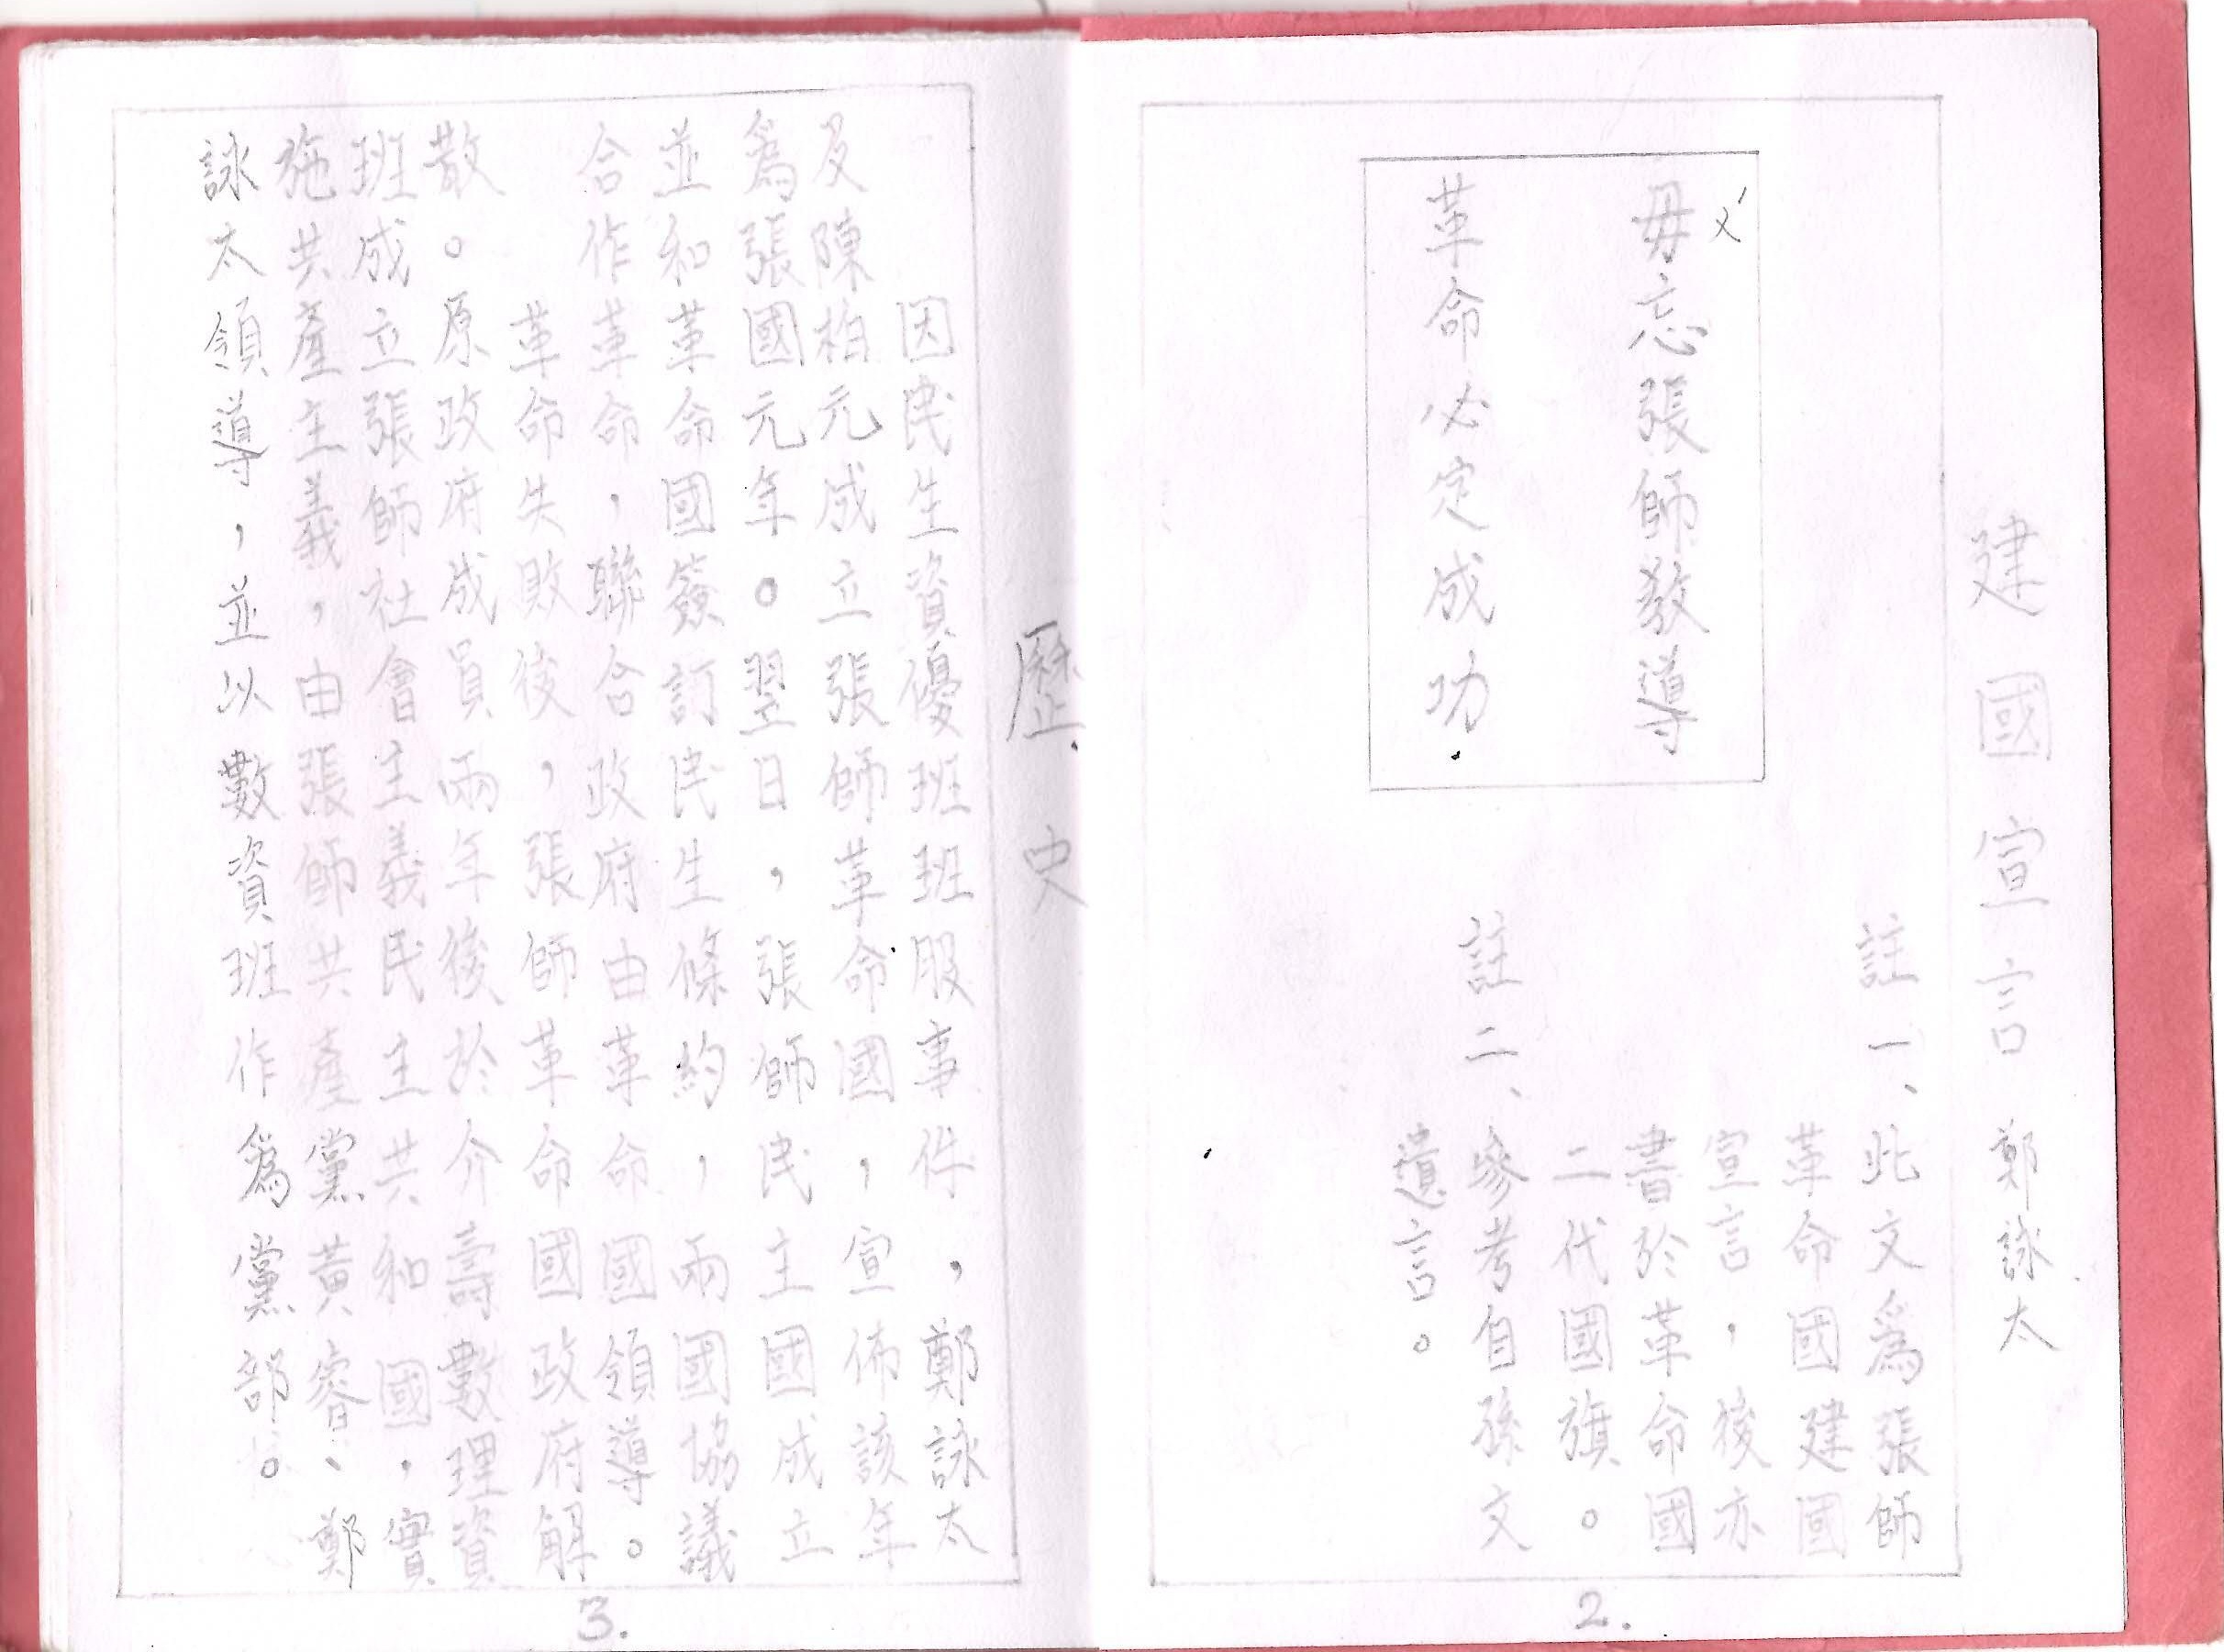 建國宣言 鄭詠太
毋忘張師教導
ㄨˊ
革命必定成功
註一、此文為張師
革命國建國
宣言，後亦
書於革命國
二代國旗。
註二、參考自孫文
遺言。
2.
歷史
因民生資優班班服事件，鄭詠太
及陳柏元成立張師革命國，宣佈該年
為張國元年。翌日，張師民主國成立
並和革命國簽訂民生條約，兩國協議
合作革命，聯合政府由革命國領導。
革命失敗後，張師革命國政府解
散。原政府成員兩年後於介壽數理資
班成立張師社會主義民主共和國，實
施共產主義，由張師共產黨黃睿、鄭
詠太領導，並以數資班作為黨部。
3.